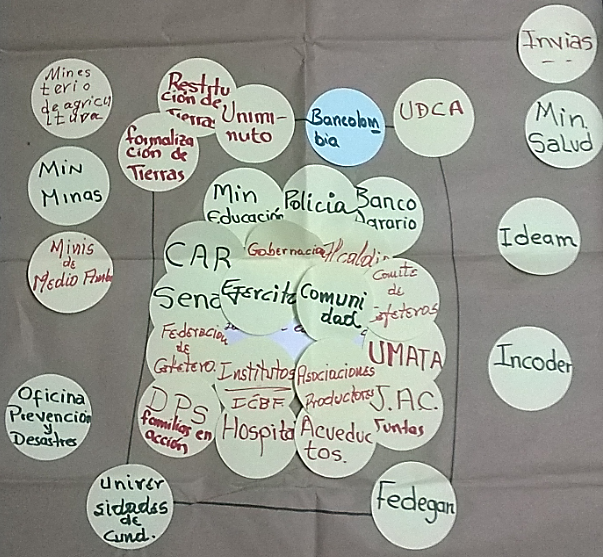 Invias
Mines
terio
de agricu
ltura
Restitu
ción de
Tierras
Unimi-
nuto
Bancolom
bia
UDCA
Min.
Salud
formaliza
ción de
Tierras
Min
Minas
Min
Educación
Policia
Banco
Agrario
Ideam
Minis
de
Medio Amb
CAR
Gobernacion
Alcaldia
Comite
de
Cafeteros
Sena
Ejercito
Comuni
dad
Federacion
de
Cafetero.
UMATA
Incoder
Institutos
ICBF
Asociaciones
Productores
J.A.C.
Juntas
Oficina
Prevención
y
Desastres
DPS
familias en
acción
Hospital
Acueduc
tos.
Univer
sidades
de
Cund.
Fedegan